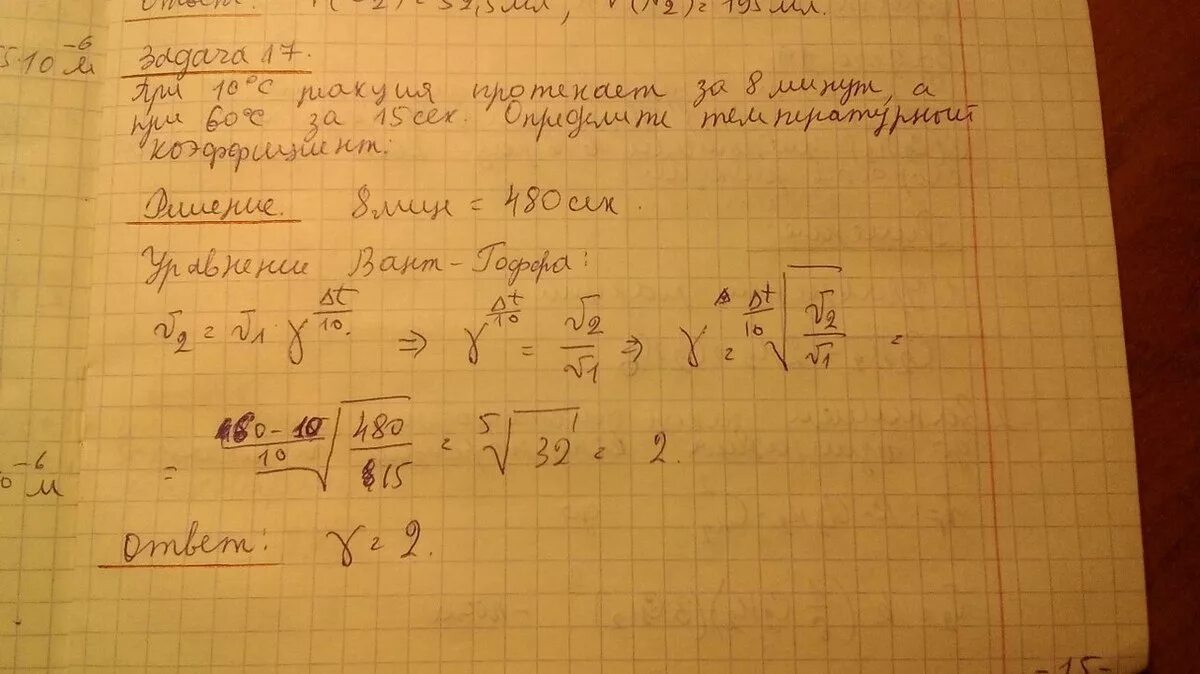 Ответ: V( 2) = 52,5 мл, V(N2) = 195 мл.
5·10⁻⁶ м
Задача 17.
При 10°С реакция протекает за 8 минут, а
при 60°С за 15 сек. Определите температурный
коэффициент.
Решение. 8 мин = 480 сек.
Уравнение Вант-Гоффа:
v₂ = v₁ γ^(Δt/10). ⇒ γ^(Δt/10) = v₂/v₁ ⇒ γ = ^(Δt/10)√(v₂/v₁) =
= ^((60-10)/10)√(480/15) = ⁵√32 = 2.
⁻⁶ м
Ответ: γ = 2.
-15-